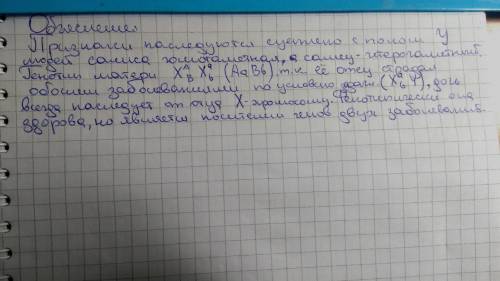 Объяснение:
Признаки наследуются сцеплено с полом. У
людей самка гомогаметная, а самец - гетерогаметный.
Генотип матери X^A_B X^a_b (AaBb), т.к. её отец страдал
обоими заболеваниями по условию задачи (X^a_b Y), дочь
всегда наследует от отца X-хромосому. Фенотипически она
здорова, но является носителем генов двух заболеваний.